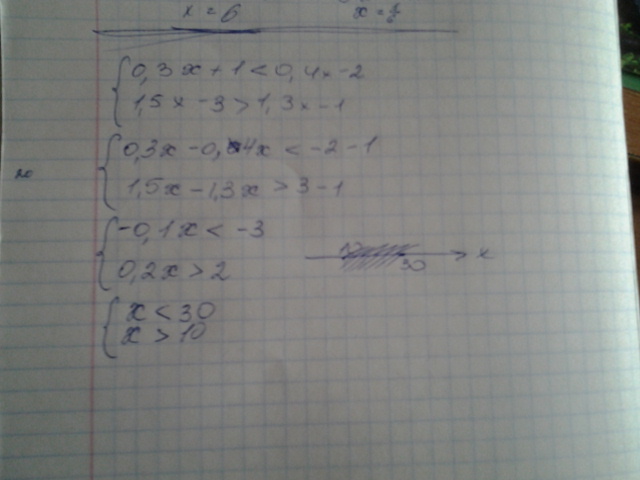 x = 6
{ 0,3x + 1 < 0,4x - 2
1,5x - 3 > 1,3x - 1
{ 0,3x - 0,4x < -2 - 1
1,5x - 1,3x > 3 - 1
{ -0,1x < -3
0,2x > 2
10 30 x
{ x < 30
x > 10